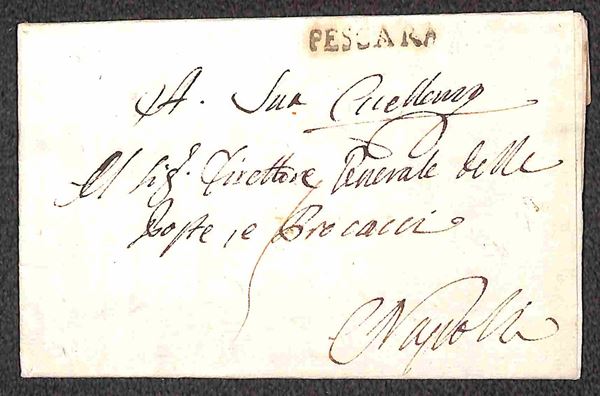 PESCARA
A. Sua Eccellenza
Al Sig.r Direttore Generale delle
Poste, e Procacci
Napoli